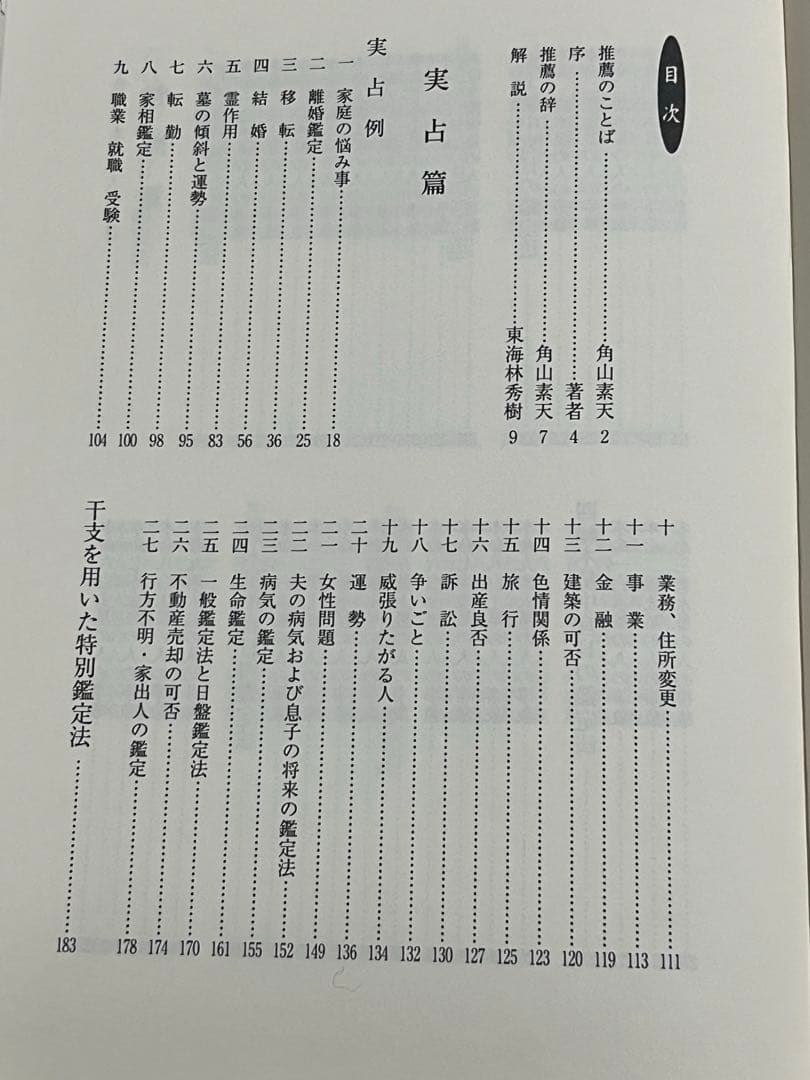 目次
推薦のことば……………………角山素天 2
序……………………………………著者 4
推薦の辞……………………………角山素天 7
解説…………………………………東海林秀樹 9
実占篇
実占例
一 家庭の悩み事……………………18
二 離婚鑑定…………………………25
三 移転………………………………36
四 結婚………………………………56
五 霊作用……………………………83
六 墓の傾斜と運勢…………………95
七 転勤………………………………98
八 家相鑑定…………………………100
九 職業 就職 受験…………………104
十 業務、住所変更…………………111
十一 事業……………………………113
十二 金融……………………………119
十三 建築の可否……………………120
十四 色情関係………………………123
十五 旅行……………………………125
十六 出産良否………………………127
十七 訴訟……………………………130
十八 争いごと………………………132
十九 威張りたがる人………………134
二十 運勢……………………………136
二一 女性問題………………………149
二二 夫の病気および息子の将来の鑑定法……152
二三 病気の鑑定……………………155
二四 生命鑑定………………………161
二五 一般鑑定法と日盤鑑定法……170
二六 不動産売却の可否……………174
二七 行方不明・家出人の鑑定……178
干支を用いた特別鑑定法……………183